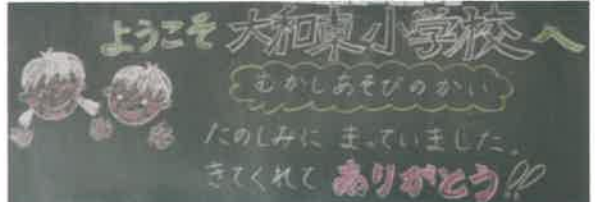 ようこそ 大和東小学校へ
むかしあそびのかい
たのしみに まっていました。
きてくれて ありがとう!!